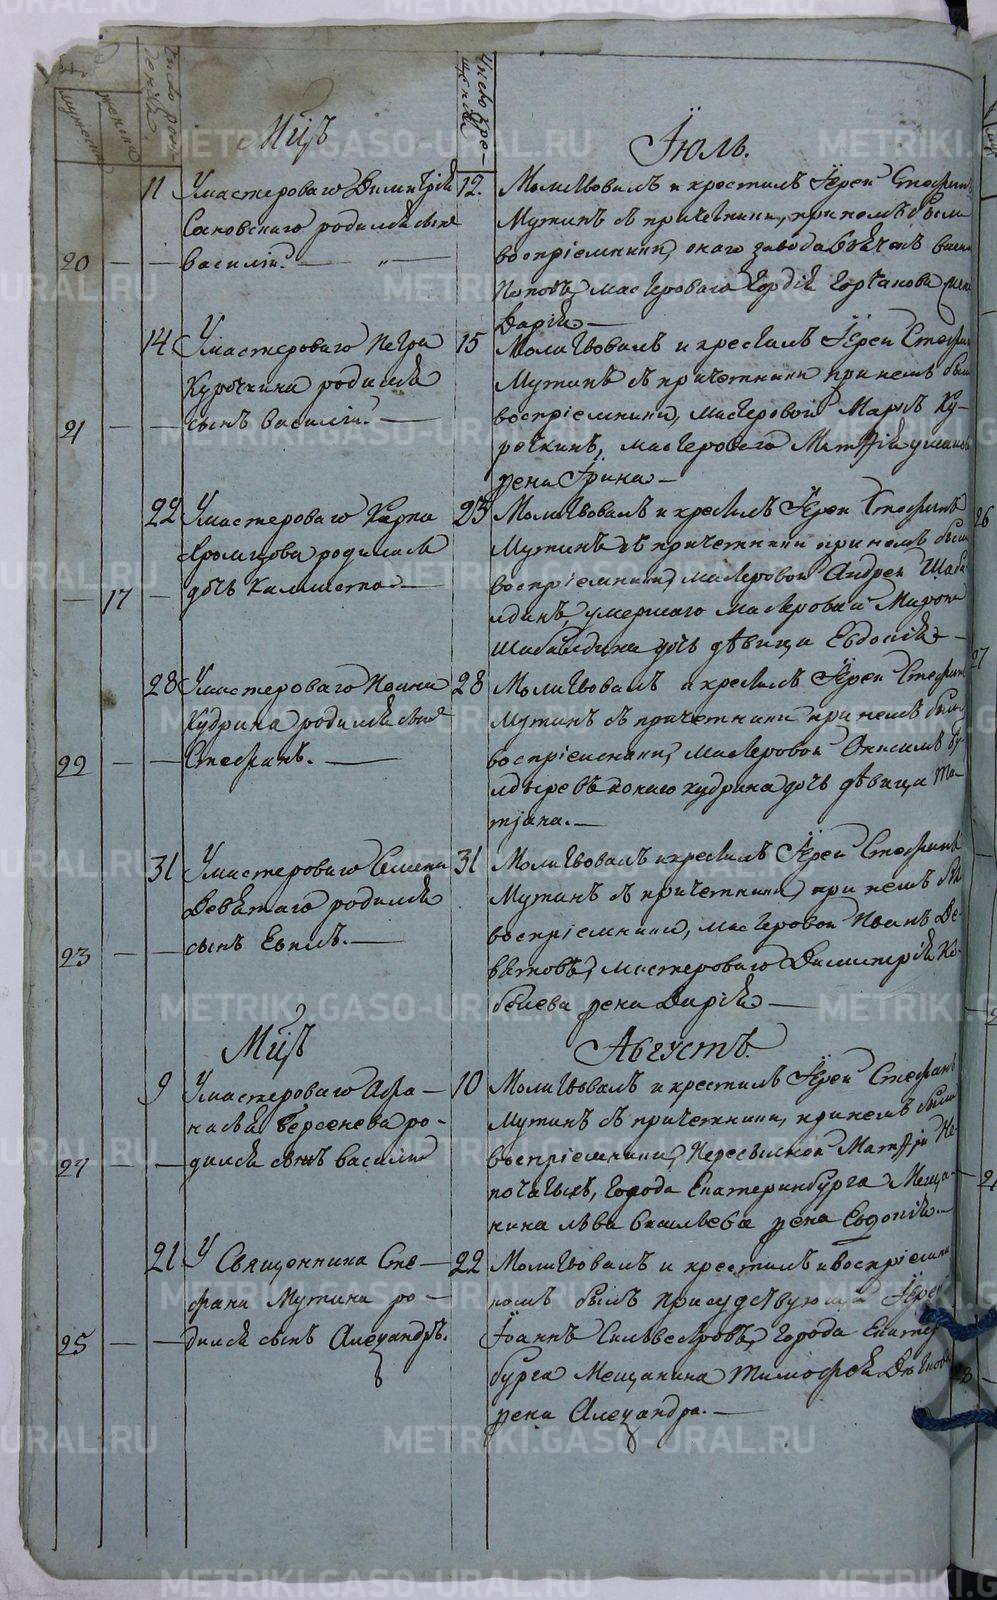 мужеска
женска
число рождения
число крещения
Мцъ
Іюль.
11
Умастероваго Димитрія
Сановскаго родился сынъ
20 — — Василій. —
12.
Молитвовалъ и крестилъ Іерей Стефанъ
Мутинъ съ причетники, при немъ были
воспріемники, онаго завода
Поповъ, мастероваго Гордія Горчакова жена
Дарія —
14
Умастероваго Петра
Курочкина родился
21 — — сынъ Василій. —
15
Молитвовалъ и крестилъ Іерей Стефанъ
Мутинъ съ причетники при немъ были
воспріемники, мастеровой Маркъ Ку-
рочкинъ, мастероваго Матѳія
жена Ірина —
22
Умастероваго Карпа
Хромцова родилась
— 17 — дочь Каллиста. —
23
Молитвовалъ и крестилъ Іерей Стефанъ
Мутинъ съ причетники при немъ были
воспріемники, мастеровой Андрей Шаба-
лдинъ, умершаго мастероваго Мирона
Шабалдина дочь дѣвица Евдокія —
28
Умастероваго Иоанна
Кудрина родился сынъ
22 — — Стефанъ. —
28
Молитвовалъ и крестилъ Іерей Стефанъ
Мутинъ съ причетники при немъ были
воспріемники, мастеровой Онисимъ Бу-
лдыревъ кудрина дочь дѣвица Та-
тіана. —
31
Умастероваго Семена
Девятаго родился
23 — — сынъ Евплъ. —
31
Молитвовалъ и крестилъ Іерей Стефанъ
Мутинъ съ причетники, при немъ были
воспріемники, мастеровой Иванъ Де-
вятовъ, мастероваго Димитрія Ко-
белева жена Дарія —
Мцъ
Августъ.
9
Умастероваго Афа-
насія Берсенева ро-
24 — — дился сынъ Василій
10
Молитвовалъ и крестилъ Іерей Стефанъ
Мутинъ съ причетники, при немъ были
воспріемники, Матѳій Не-
початыхъ, города Екатеринбурга Меща-
нина Льва Васильева жена Евдокія. —
21
У Священника Сте-
фана Мутина ро-
25 — — дился сынъ Александръ.
22
Молитвовалъ и крестилъ и воспріемни
комъ былъ присудствующій Іерей
Іоаннъ Сильвестровъ, города Екатер
бурга Мещанина Тимофея
жена Александра. —
26
27